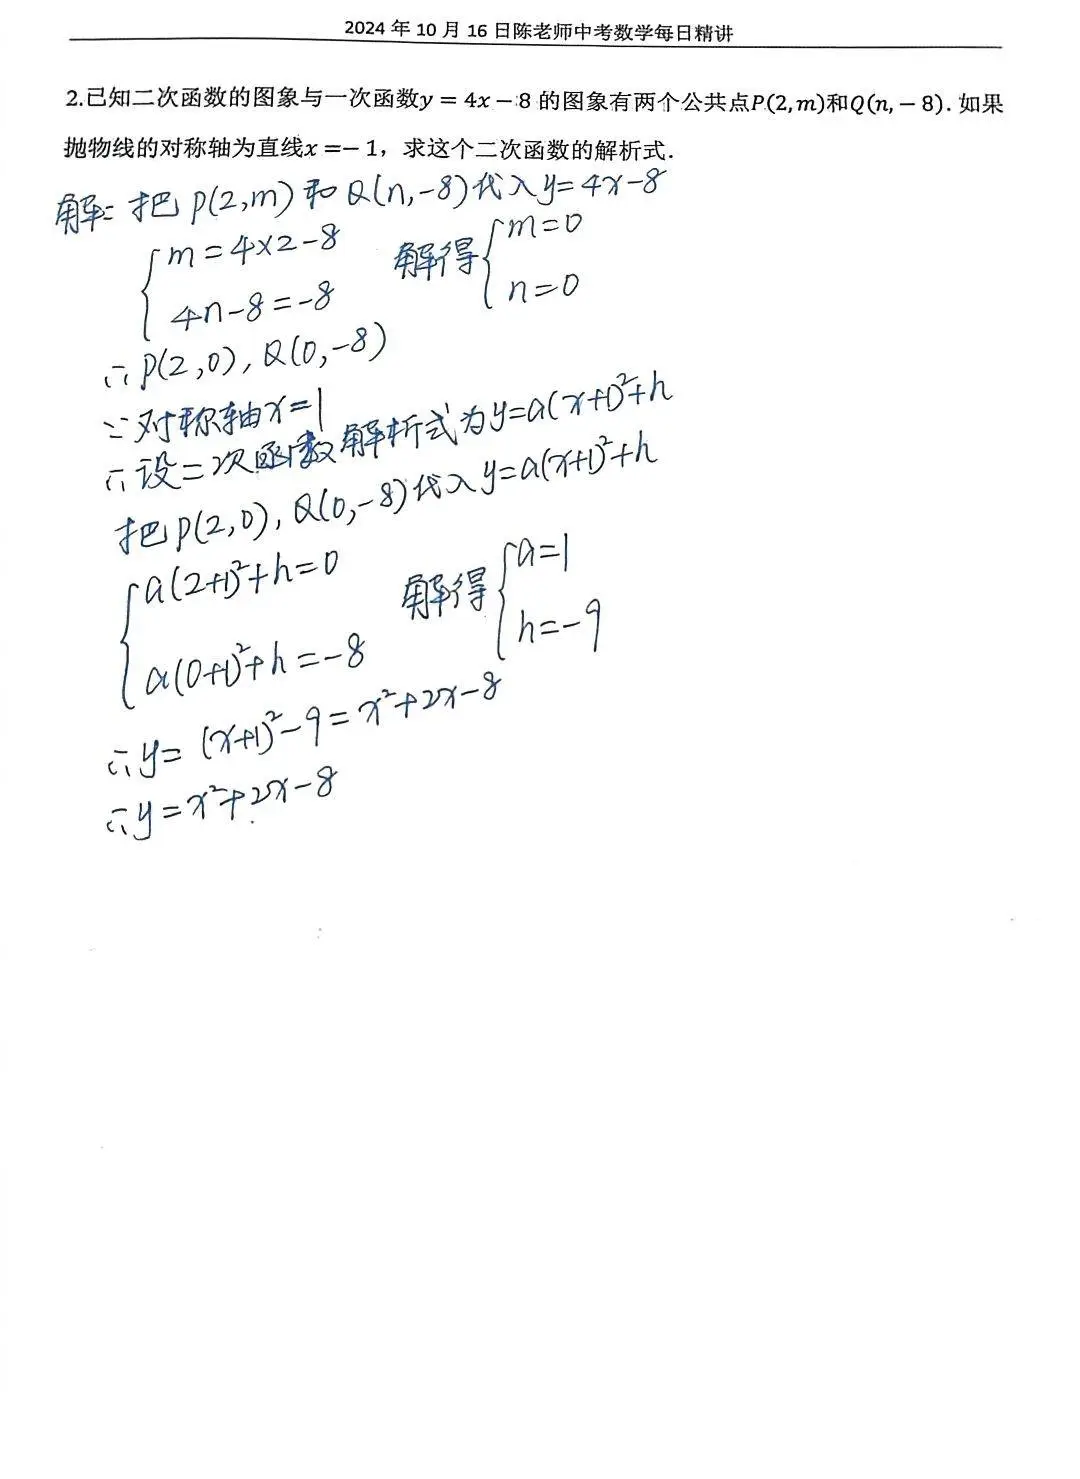 2024 年 10 月 16 日陈老师中考数学每日精讲
2.已知二次函数的图象与一次函数y = 4x − 8 的图象有两个公共点P(2, m)和Q(n, − 8). 如果
抛物线的对称轴为直线x =− 1，求这个二次函数的解析式.
解: 把 P(2,m) 和 Q(n,-8)代入 y=4x-8
{ m=4×2-8 解得 { m=0
4n-8=-8 n=0
∴ P(2,0), Q(0,-8)
∵ 对称轴x=1
∴ 设二次函数解析式为y=a(x+1)²+h
把 P(2,0), Q(0,-8)代入 y=a(x+1)²+h
{ a(2+1)²+h=0 解得 { a=1
a(0+1)²+h=-8 h=-9
∴ y= (x+1)²-9=x²+2x-8
∴ y=x²+2x-8